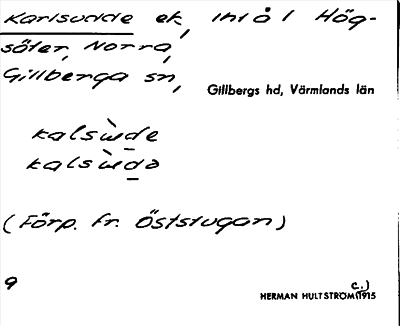 Karlsudde ek, inl å i Hög-
säter, Norra,
Gillberga sn,
Gillbergs hd, Värmlands län
kalsùde
kalsùdə
(Förp. fr. Öststugan)
9
HERMAN HULTSTRÖM (c.) 1915